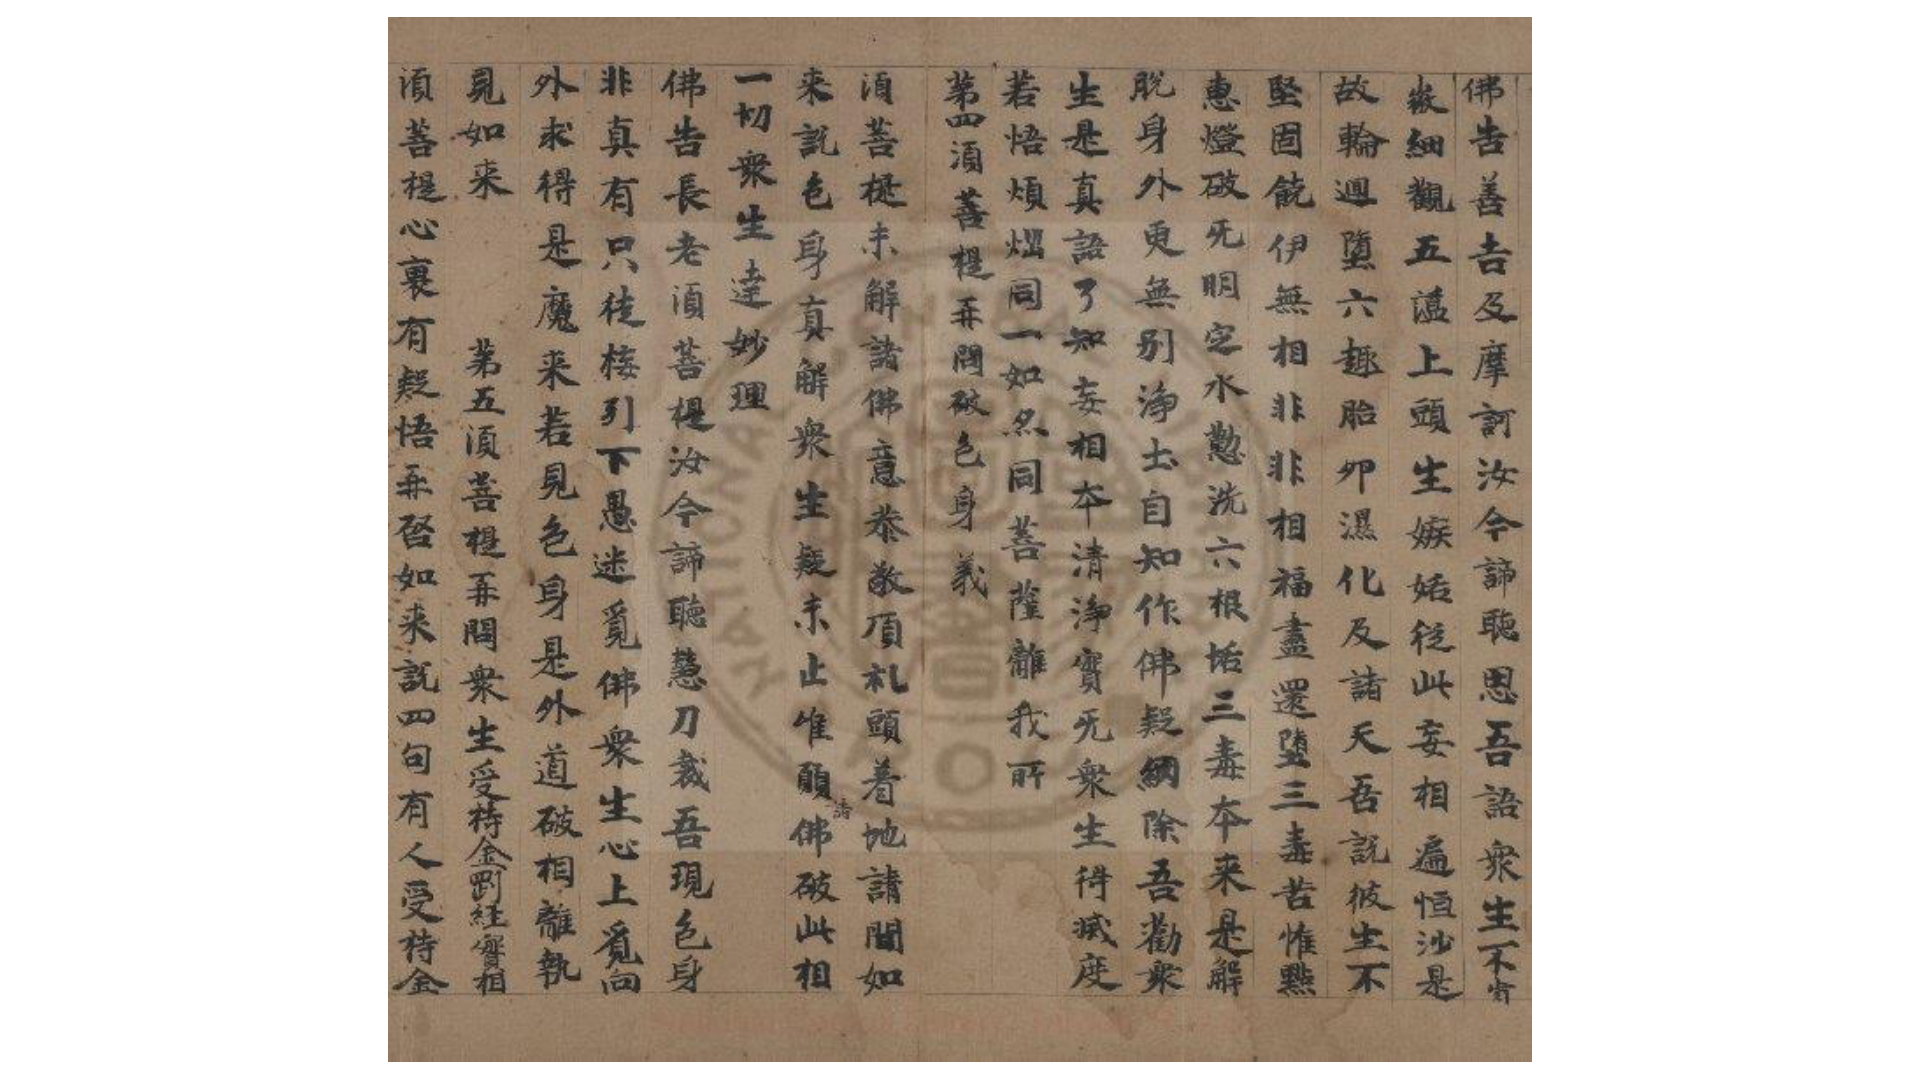 佛告善吉及摩訶汝今諦聽思吾語衆生不肯
微細觀五蘊上頭生嫉妬從此妄相遍恒沙是
故輪迴墮六趣胎卯濕化及諸天吾説彼生不
堅固饒伊無相非非非相福盡還墮三毒苦惟點
惠燈破无明定水懃洗六根垢三毒夲来是解
脱身外更無別淨土自知作佛疑網除吾勸衆
生是真語了知妄相夲清淨實无衆生得滅度
若悟煩惱同一如然同菩薩離我所
苐四湏菩提弄問破色身義
湏菩提未解諸佛意恭敬頂礼頭着地請問如
来説色身真解衆生疑未止惟願請佛破此相
一切衆生達妙理
佛告長老湏菩提汝今諦聽慧刀裁吾現色身
非真有只徒接引下愚迷覓佛衆生心上覓向
外求得是魔来若見色身是外道破相離執
見如来 苐五湏菩提弄問衆生受持金剛經實相
湏菩提心裏有疑悟弄啓如来説四句有人受持金